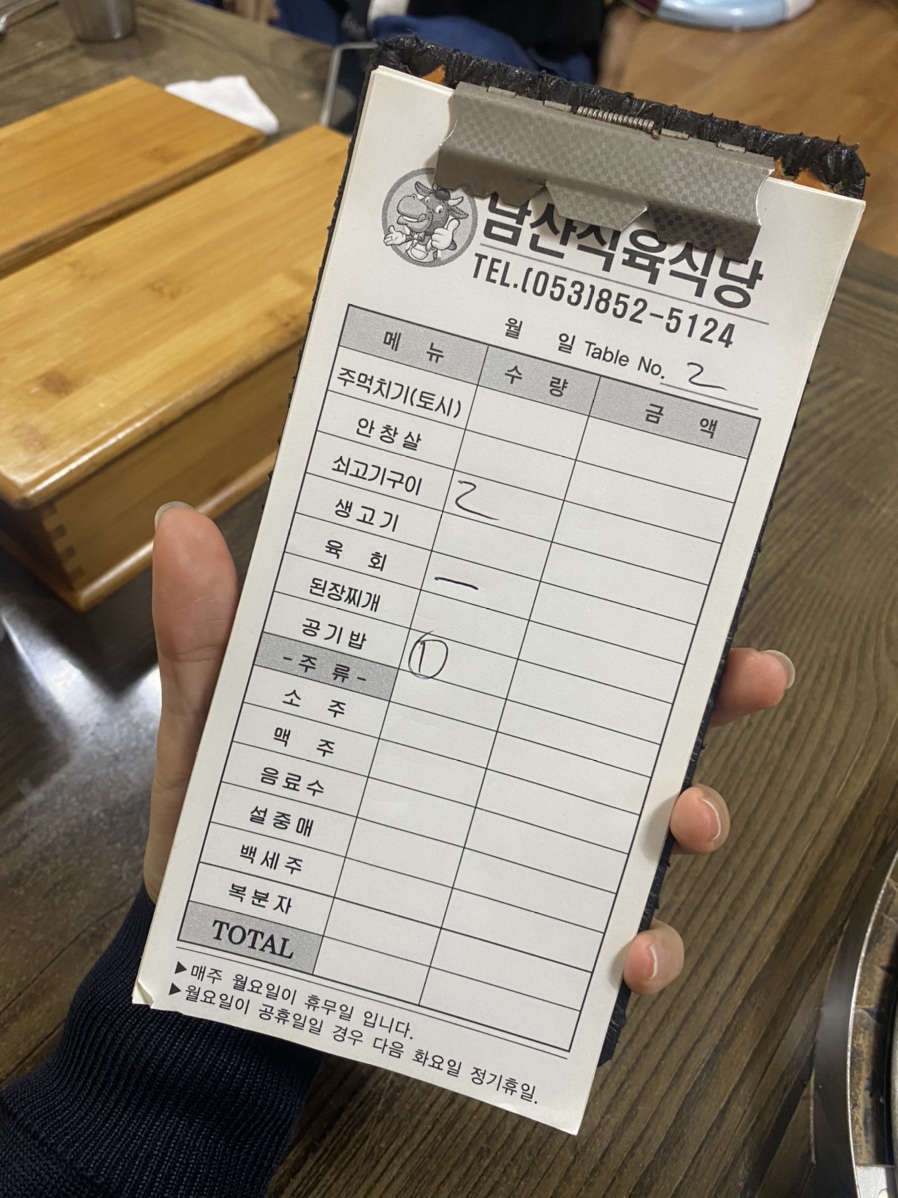 남산식육식당
TEL.(053)852-5124
월 일 Table No. 2
메 뉴 수 량 금 액
주먹치기(토시)
안창살
쇠고기구이 2
생고기
육 회 一
된장찌개
공기밥 ①
-주 류-
소 주
맥 주
음료수
설중매
백세주
복분자
TOTAL
▶매주 월요일이 휴무일 입니다.
▶월요일이 공휴일일 경우 다음 화요일 정기휴일.